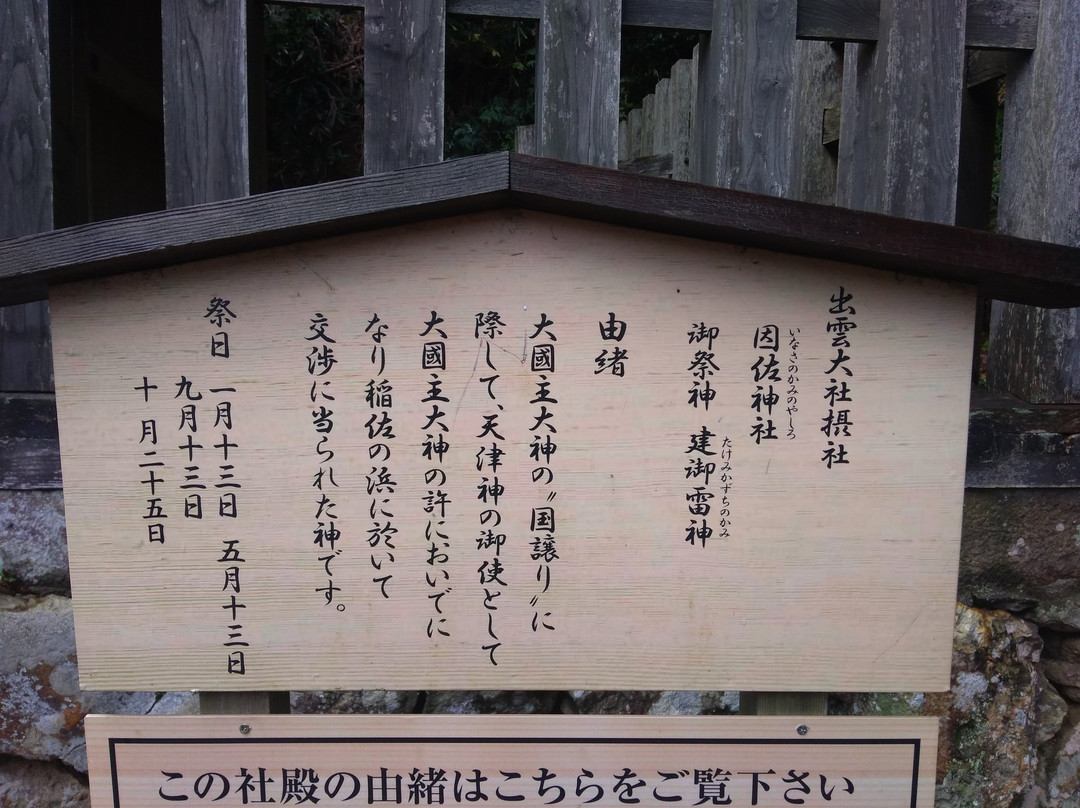 出雲大社摂社
因佐神社
いなさのかみのやしろ
御祭神　建御雷神
たけみかずちのかみ
由緒
大國主大神の〝国譲り〟に
際して、天津神の御使として
大國主大神の許に、おいでに
なり稲佐の浜に於いて
交渉に当られた神です。
祭日　一月十三日　五月十三日
九月十三日
十月二十五日
この社殿の由緒はこちらをご覧下さい